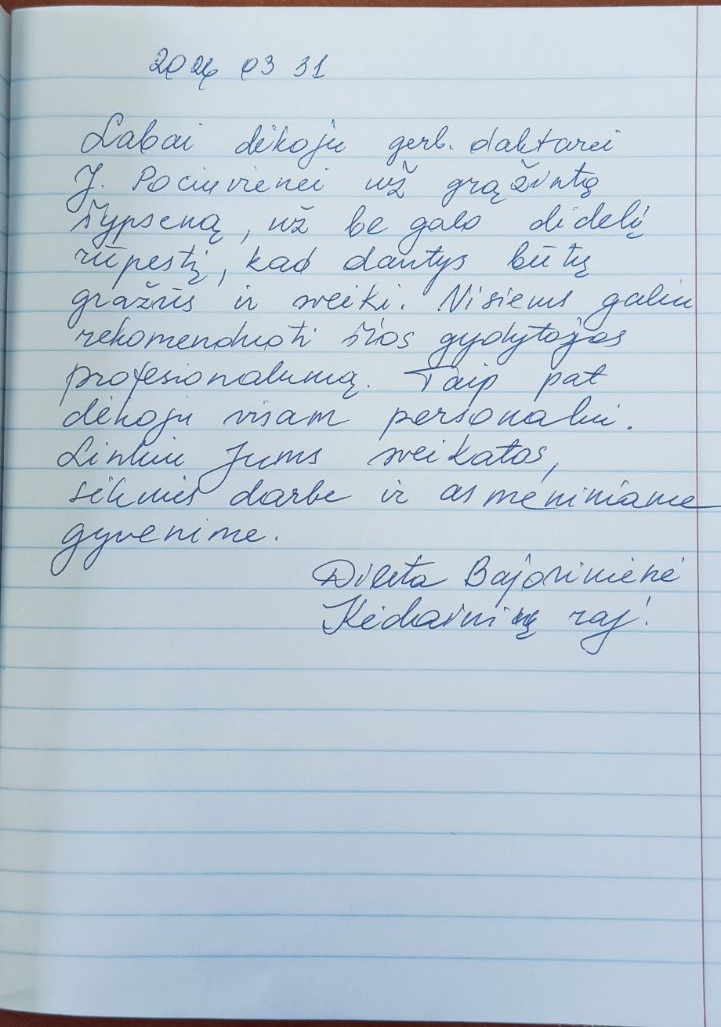 2026 03 31
Labai dėkoju gerb. daktarei
J. Pociuvienei už grąžintą
šypseną, už be galo didelį
rūpestį, kad dantys būtų
gražūs ir sveiki. Visiems galiu
rekomenduoti šios gydytojos
profesionalumą. Taip pat
dėkoju visam personalui.
Linkiu Jums sveikatos,
sėkmės darbe ir asmeniniame
gyvenime.
Bajorinienė
Kėdainių raj.